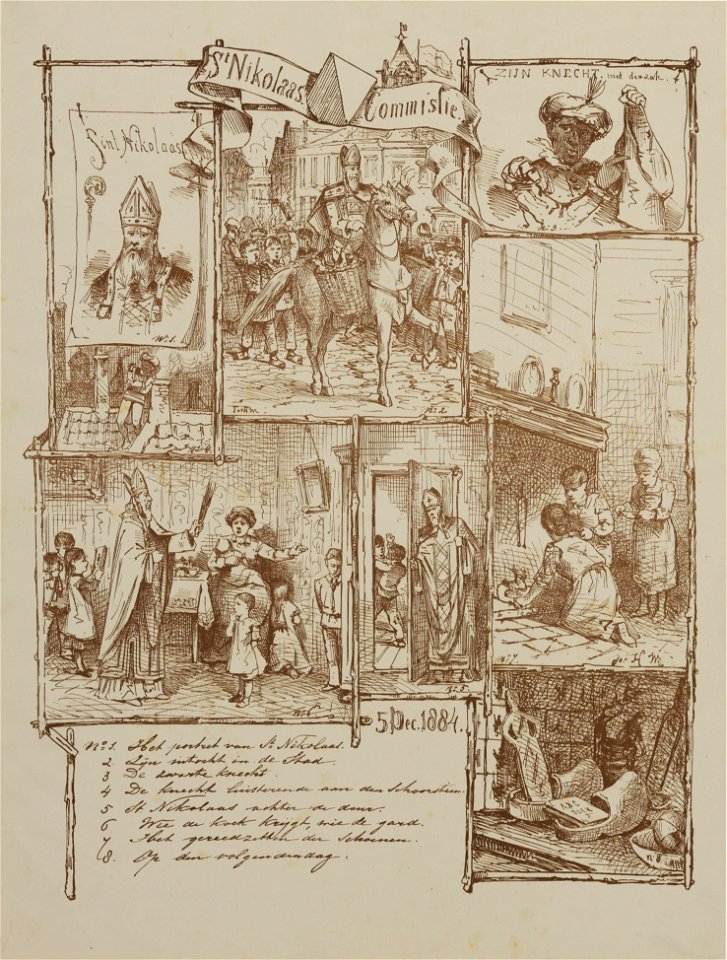 St Nikolaas
Commissie.
ZIJN KNECHT. met den zak.
Sint Nikolaas
No 1.
No 2
No 3.
No 4
No 5
No 6
No 7
5 Dec. 1884.
No 1. Het portret van St Nikolaas.
2. Zijn intocht in de Stad.
3 De zwarte knecht.
4 De Knecht luisterende aan den Schoorsteen
5 St Nikolaas achter de deur.
6 Wie de koek krijgt, wie de gard.
7 Het gereedzetten der Schoenen.
8. Op den volgenden dag.
No 8.